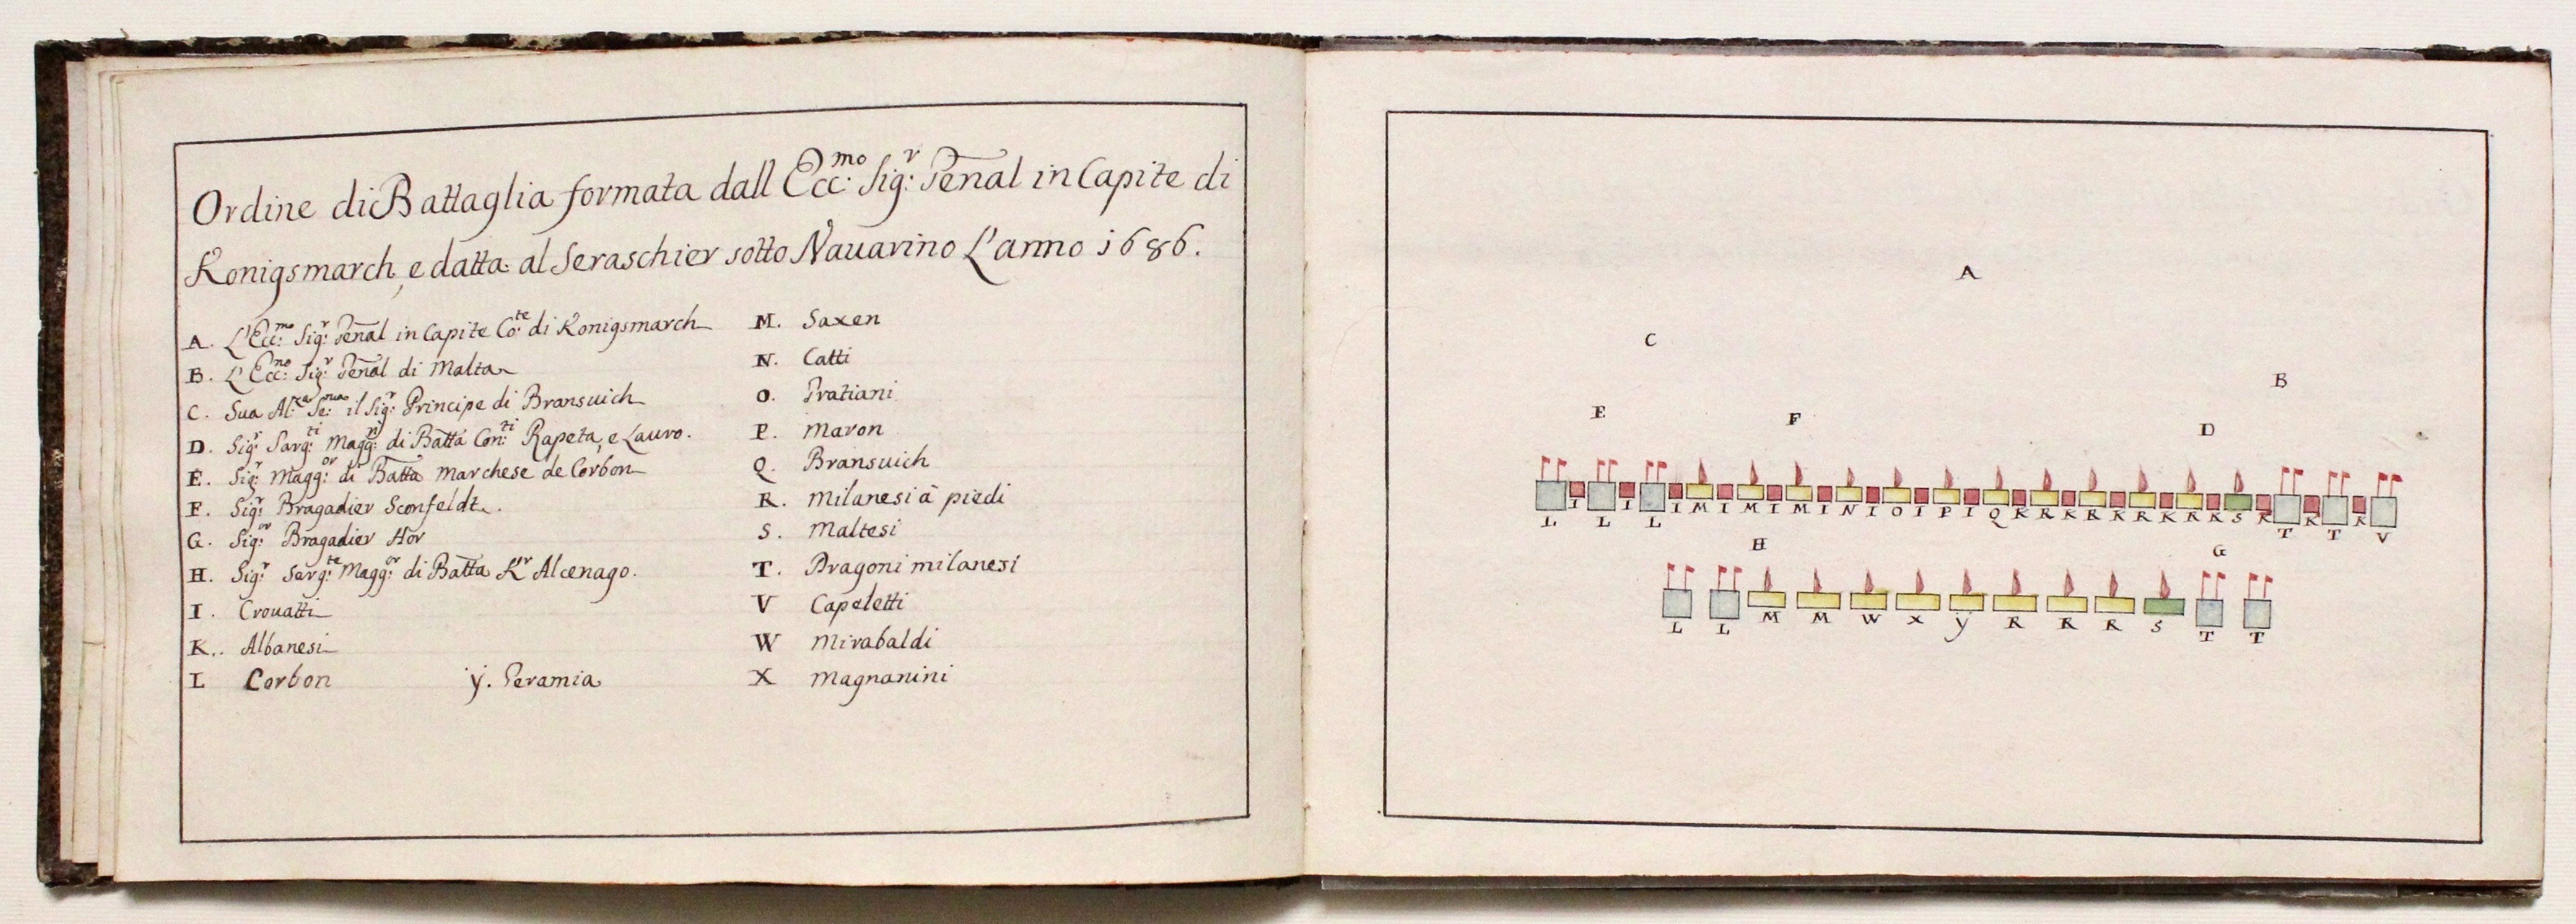 Ordine di Battaglia formata dall Ecc:mo Sig:r Genal in Capite di
Konigsmarch, e datta al Seraschier sotto Nauarino L'anno 1686.
A. L'Ecc:mo Sig:r Genal in Capite Co:te di Konigsmarch
B. L'Ecc:mo Sig:r Genal di Malta
C. Sua Al:za Se:ma il Sig:r Principe di Bransuich
D. Sig:r Sarg:ti Magg:ri di Batta Con:ti Rapeta, e Lauro.
E. Sig:r Magg:or di Batta Marchese de Corbon
F. Sig:r Bragadier Sconfeldt.
G. Sig:or Bragadier Hor
H. Sig:r Sarg:te Magg:or di Batta K:r Alcenago.
I. Crouatti
K. Albanesi
L Corbon
y. Geramia
M. Saxen
N. Catti
O. Gratiani
P. Maron
Q. Bransuich
R. Milanesi à piedi
S. Maltesi
T. Dragoni milanesi
V Capeletti
W Mirabaldi
X Magnanini
A
C
B
E F
D
L I L I L I M I M I M I N I O I P I Q K R K R K R K R K S K T K T K V
H G
L L M M W X y R R R S T T